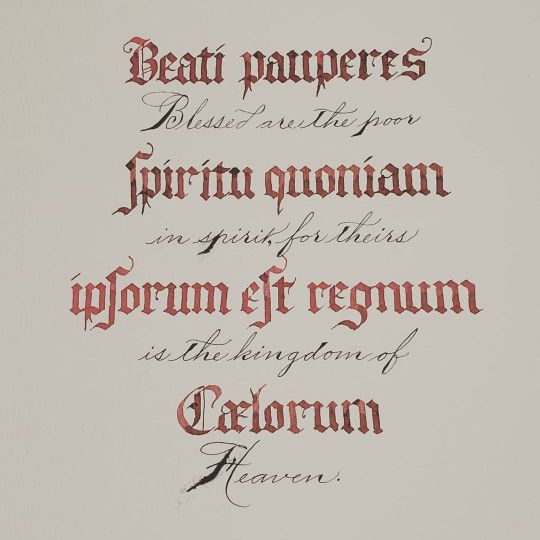 Beati pauperes
Blessed are the poor
ſpiritu quoniam
in spirit, for theirs
ipſorum eſt regnum
is the kingdom of
Cælorum
Heaven.